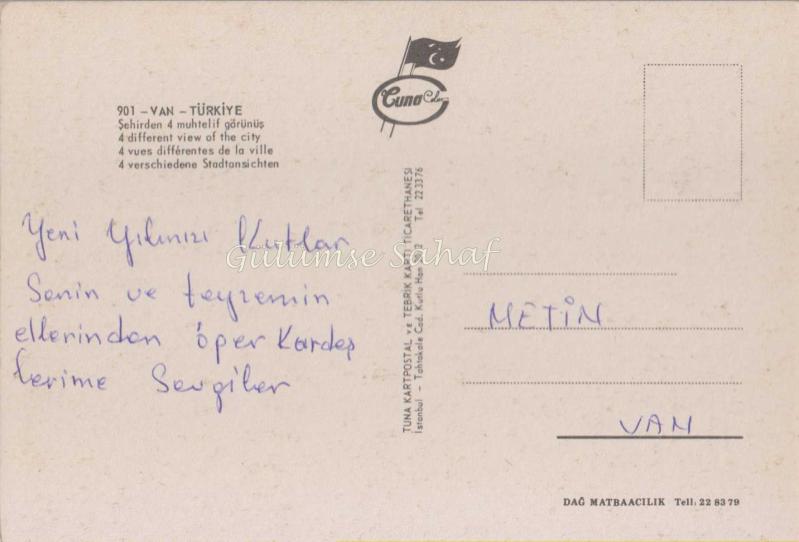 901 – VAN – TÜRKİYE
Şehirden 4 muhtelif görünüş
4 different view of the city
4 vues différentes de la ville
4 verschiedene Stadtansichten
Yeni Yılınızı Kutlar
Senin ve teyzemin
ellerinden öper Kardeş
lerime Sevgiler
Gülümse Sahaf
Tuna Color
TUNA KARTPOSTAL ve TEBRİK KARTI TİCARETHANESİ
İstanbul – Tahtakale Cad. Kutlu Han 2 Tel 22 33 76
METİN
VAN
DAĞ MATBAACILIK Tell: 22 83 79